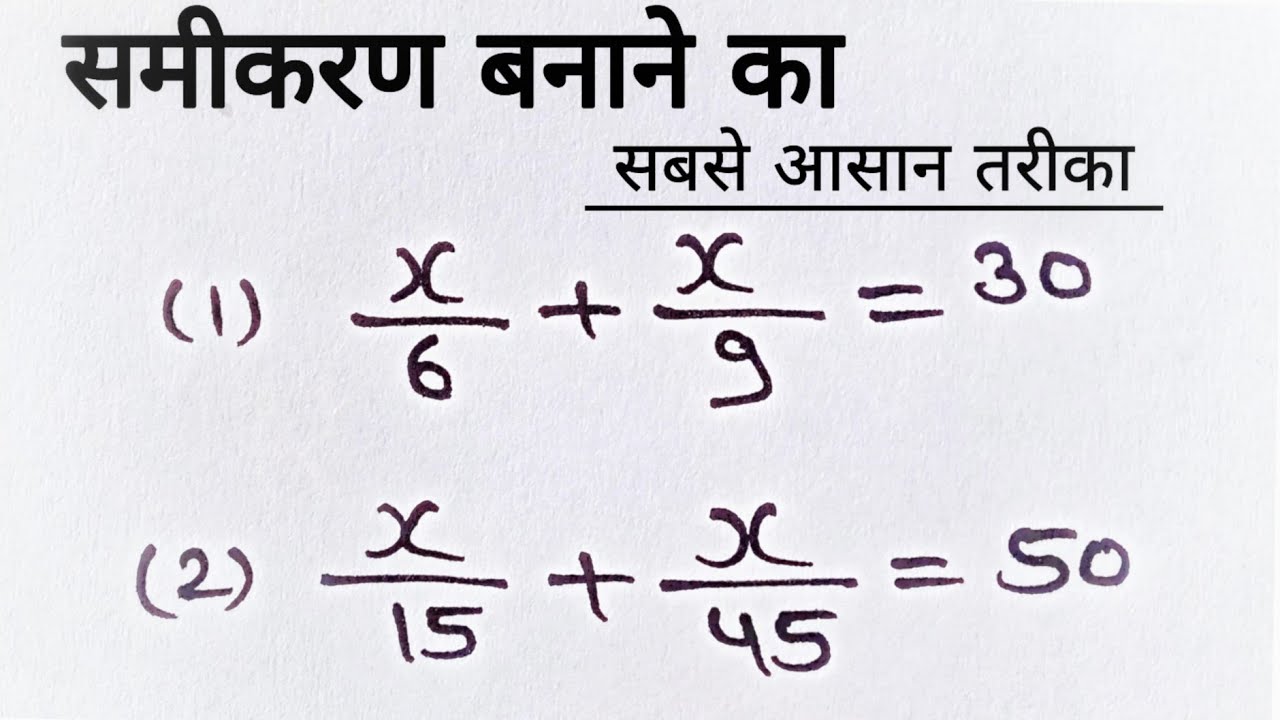 समीकरण बनाने का
सबसे आसान तरीका
(1) x/6 + x/9 = 30
(2) x/15 + x/45 = 50